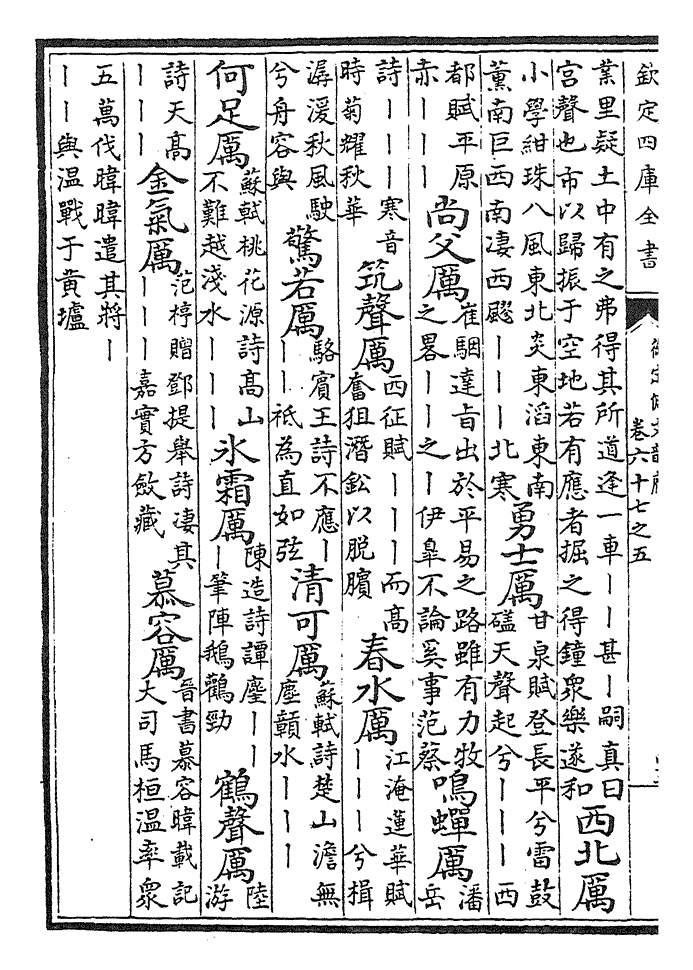 欽定四庫全書
卷六十七之五
業里疑土中有之弗得其所道逢一車丨丨甚丨嗣真曰
宮聲也市以歸振于空地若有應者掘之得鐘衆樂遂和
西北厲
小學紺珠八風東北炎東滔東南
薰南巨西南凄西飂丨丨丨北寒
勇士厲
甘泉賦登長平兮雷鼓
礚天聲起兮丨丨丨西
都賦平原
赤丨丨丨
尚父厲
崔駰達旨出於平易之路雖有力牧
之畧丨丨之丨伊臯不論奚事范蔡
鳴蟬厲
潘
岳
詩丨丨丨寒音
時菊耀秋華
筑聲厲
西征賦丨丨丨而高
奮狙潛鈆以脫臏
春水厲
江淹蓮華賦
丨丨丨兮楫
潺湲秋風駛
兮舟容與
驚若厲
駱賓王詩不應丨
丨丨祗為直如弦
清可厲
蘇軾詩楚山澹無
塵贑水丨丨丨
何足厲
蘇軾桃花源詩高山
不難越淺水丨丨丨
氷霜厲
陳造詩譚麈丨丨
丨筆陣鵝鸛勁
鶴聲厲
陸
游
詩天高
丨丨丨
金氣厲
范梈贈鄧提舉詩凄其
丨丨丨嘉實方斂藏
慕容厲
晉書慕容暐載記
大司馬桓温率衆
五萬伐暐暐遣其將丨
丨丨與温戰于黄壚